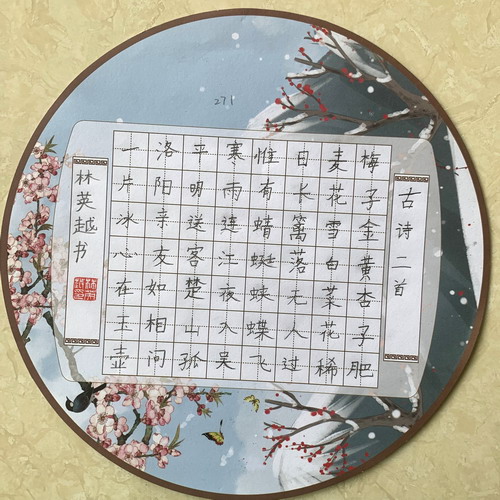 271
古诗二首
梅子金黄杏子肥
麦花雪白菜花稀
日长篱落无人过
惟有蜻蜓蛱蝶飞
寒雨连江夜入吴
平明送客楚山孤
洛阳亲友如相问
一片冰心在玉壶
林英越书